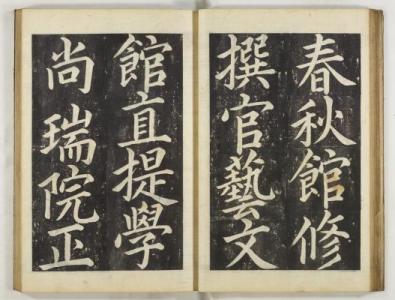 春秋館修
撰官藝文
館直提學
尚瑞院正